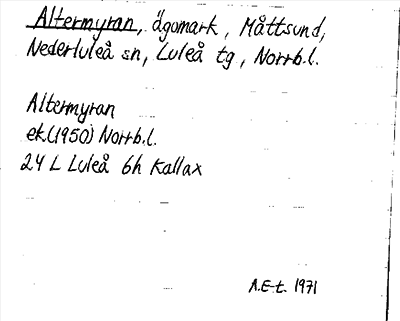 Altermyran, ägomark, Måttsund,
Nederluleå sn, Luleå tg, Norrb.l.
Altermyran
ek.(1950) Norrb.l.
24 L Luleå 6h Kallax
A.E-t. 1971